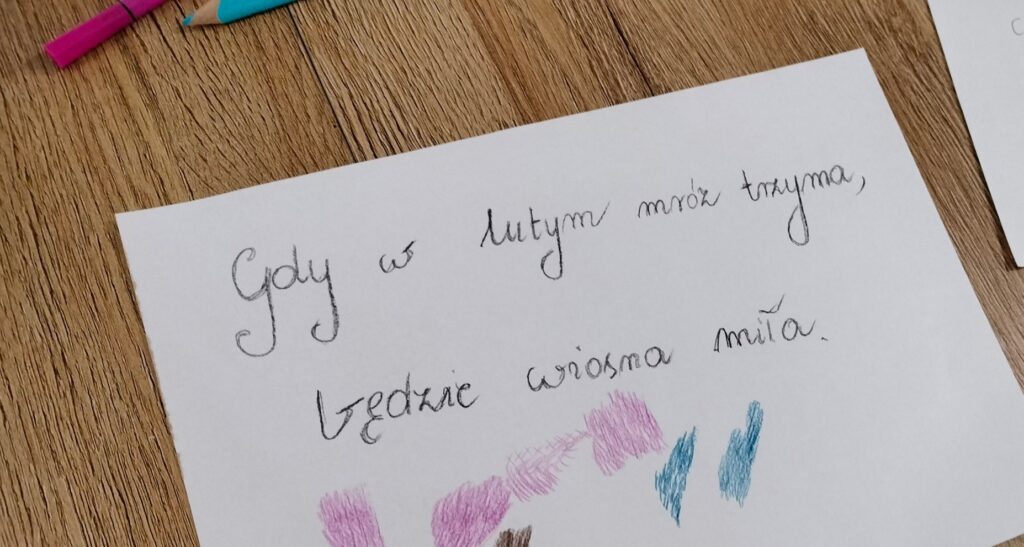 Gdy w lutym mróz trzyma,
będzie wiosna miła.